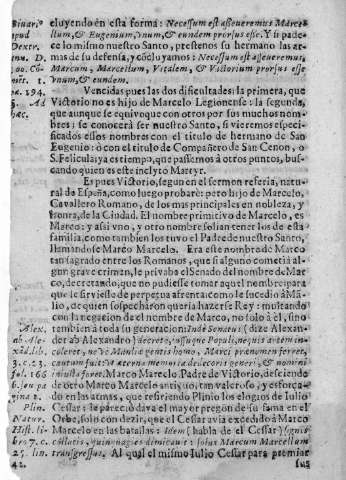 Biuar.
apud
Dextr.
anu. D.
100. Có-
mēt. 1.
pa. 194.
5. Ad
hæc.
cluyendo en esta forma: Necessum est asseueremus Marce-
llum, & Eugenium, vnum, & eundem prorsus esse. Y si pade-
ce lo mismo nuestro Santo, prestenos su hermano las ar-
mas de su defensa, y cócluyamos: Necessum est asseueremur,
Marcum, Marcellum, Vitalem, & Victorium prorsus esse
vnum, & eundem.
Vencidas pues las dos dificultades: la primera, que
Victorio no es hijo de Marcelo Legionense: la segunda,
que aunque se equivoque con otros por sus muchos nom-
bres; se conocerà ser nuestro Santo, si vieremos especi-
ficados essos nombres con el titulo de hermano de San
Eugenio: ò con el titulo de Compañero de San Cenon, o
S. Felicula; ya es tiempo, que passemos à otros puntos, bus-
cando quien es este inclyto Martyr.
Es pues Victorio, segun en el sermon referia, natu-
ral de España, como luego probarè: pero hijo de Marcelo,
Cavallero Romano, de los mas principales en nobleza, y
honra, de la Ciudad. El nombre primitivo de Marcelo, es
Marco: y assi vno, y otro nombre solian tener los de esta
familia, como tambien los tuvo el Padre de nuestro Santo,
llamandose Marco Marcelo. Era este nombre de Marco
tan sagrado entre los Romanos, que si alguno cometia al-
gun grave crimen, le privaba el Senado del nombre de Mar
co, decretando, que no pudiesse tomar aquel nombre para
que le sirviesse de perpetua afrenta como le sucediò à Mã-
lio, de quien sospecharon queria hazerse Rey: multando
con la negacion de el nombre de Marco, no solo à èl, sino
tambien à toda su generacion: Inde Senatus (dize Alexan-
der ab Alexandro) decreto, iussuque Populi, ne
coleret, ne vè Manliæ gentis homo, Marci prænomen ferret,
cautum fuit: vt æterna memoria dedecori generi, & nomini
inusta foret. Marco Marcelo, Padre de Victorio, desciende
de otro Marco Marcelo antiguo, tan valeroso, y esforça-
do en las armas, que resiriendo Plinio los elogios de Iulio
Cesar: le pareciò dava el mayor pregon de su fama en el
Orbe, solo con dezir, que el Cesar avia excedido à Marco
Marcelo en las batallas: Idem (habla de el Cesar) signis
collatis, quinquagies dimicavit: solus Marcum Marcellum
transgressus. Al qual el mismo Iulio Cesar para premiar
sus
Alex.
ab Ale-
xãd. lib.
3. c. 23.
fol. 16
pagina 2.
Plin.
Natur.
Hist. li-
bro 7. c.
25. lin.
42.